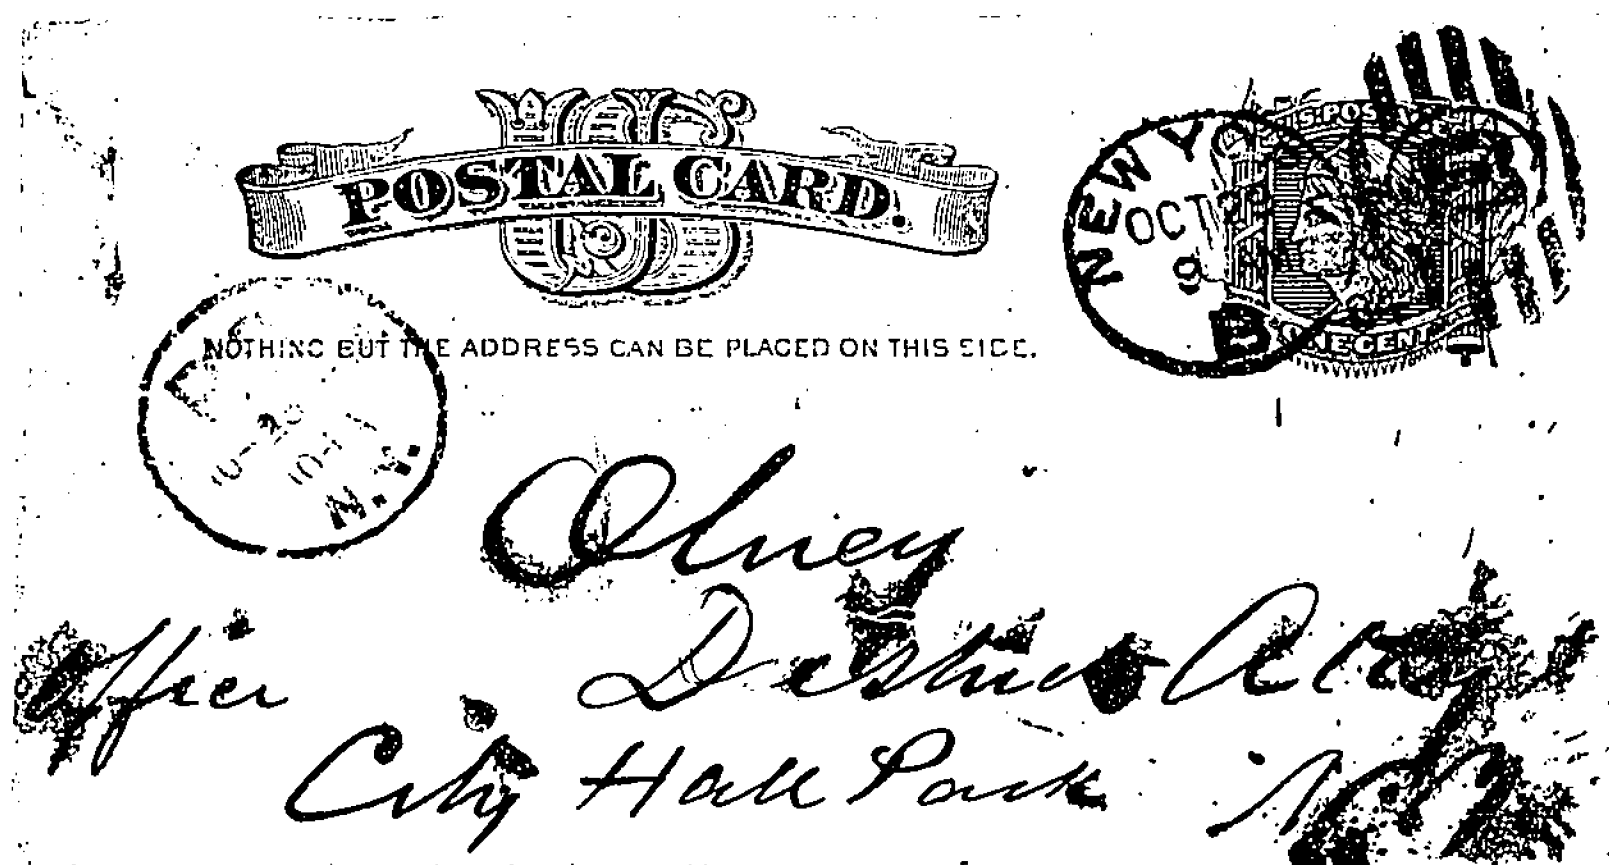 US
POSTAL CARD.
U.S. POSTAGE
ONE CENT
NEW Y
OCT
9
D
NOTHING BUT THE ADDRESS CAN BE PLACED ON THIS SIDE.
N.Y.
Olney
Office District Atty
City Hall Park N